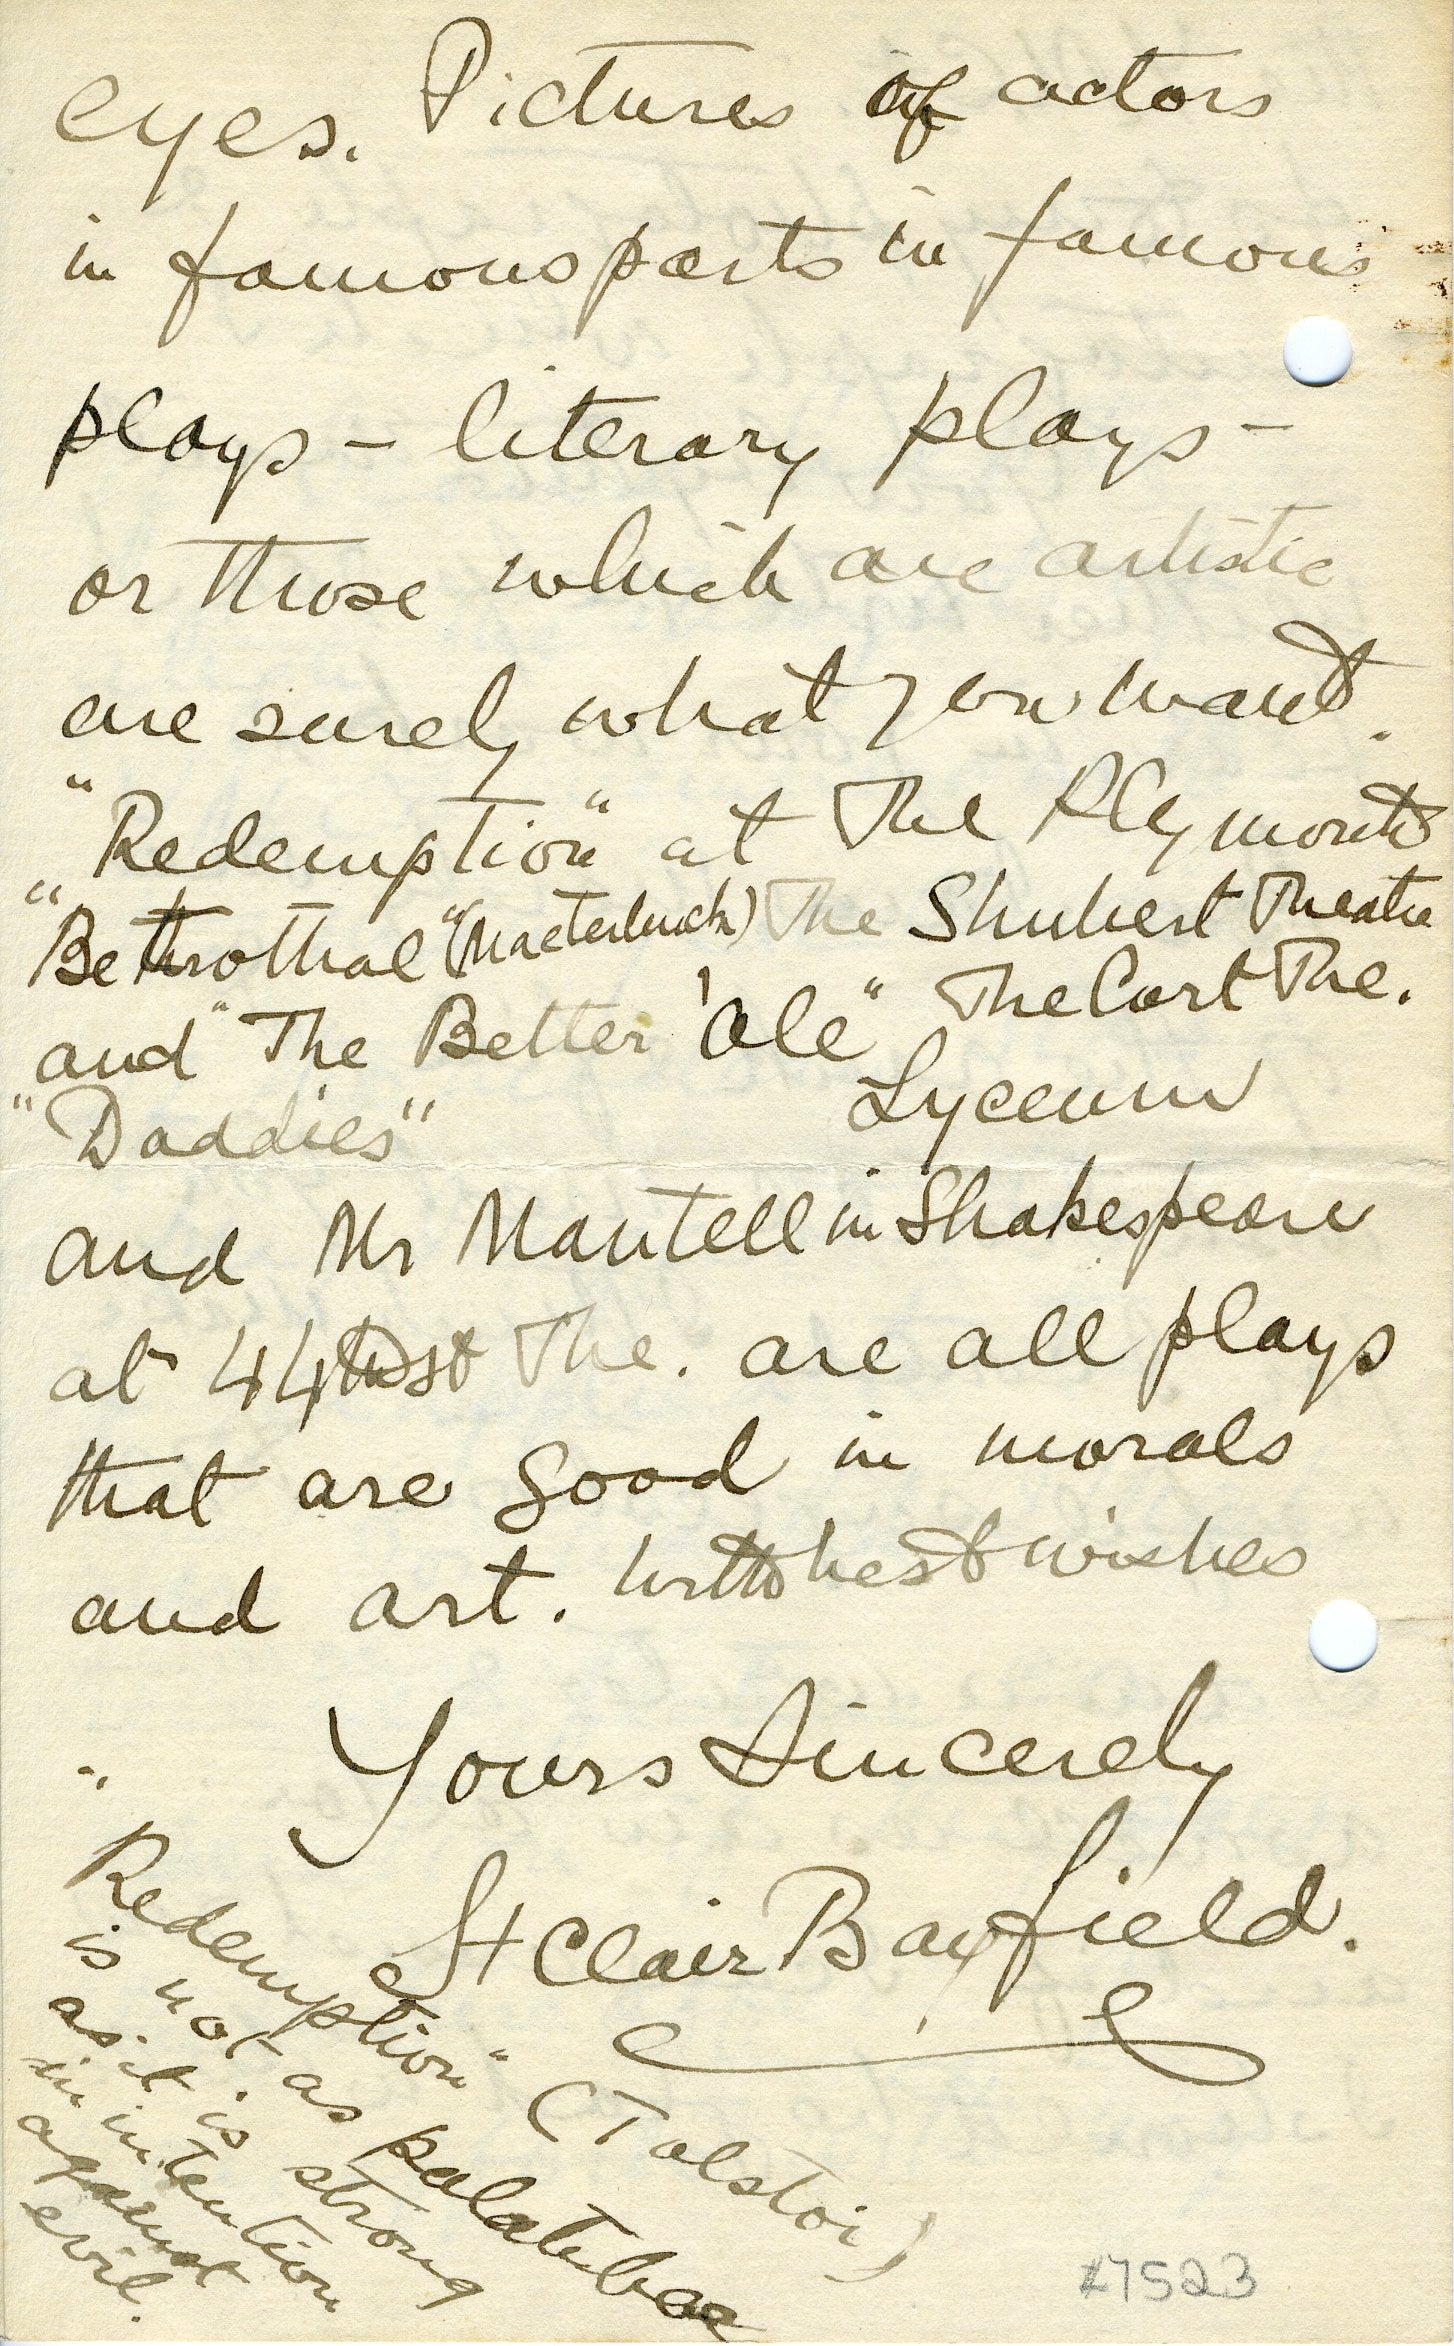 eyes. Pictures of actors
in famous parts in famous
plays – literary plays –
or those which are artistic
are surely what you want.
"Redemption" at The Plymouth
"Bethrothal" (Maeterlinck) The Shubert Theatre
and "The Better 'Ole" The Cort The.
"Daddies" Lyceum
and Mr Mantell in Shakespeare
at 44th st The. are all plays
that are good in morals
and art. With best wishes
Yours Sincerely
St Clair Bayfield.
"Redemption" (Tolstoi)
is not as palatable
as it is strong
in intention
against
evil.
#7523